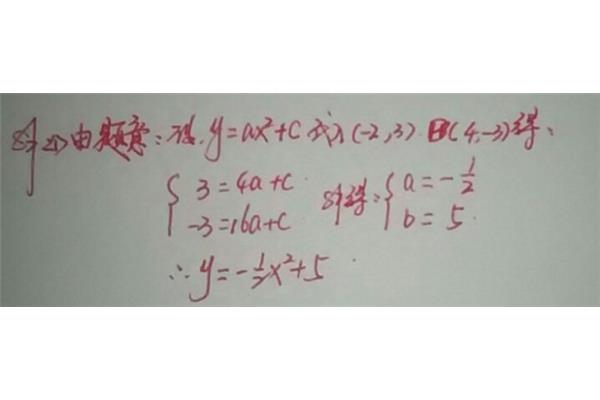 解(1)由题意:设y=ax²+c代入(-2,3)B(4,-3)得:
{3=4a+c -3=16a+c 解得:{a=-1/2 b=5
∴y=-1/2x²+5